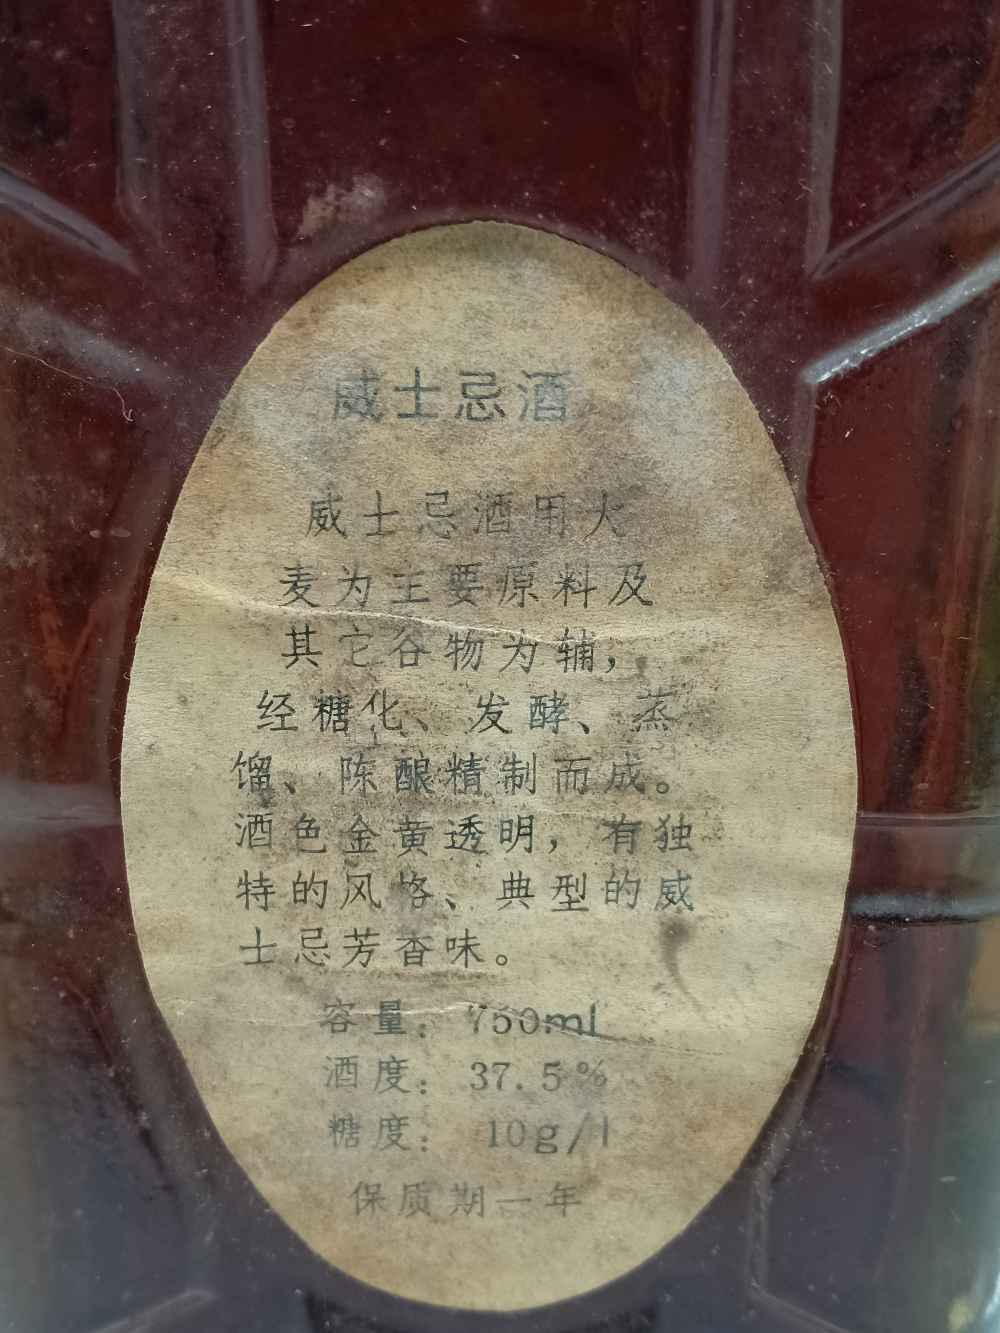 威士忌酒
威士忌酒用大
麦为主要原料及
其它谷物为辅，
经糖化、发酵、蒸
馏、陈酿精制而成。
酒色金黄透明，有独
特的风格、典型的威
士忌芳香味。
容量：750ml
酒度：37.5%
糖度：10g/l
保质期一年